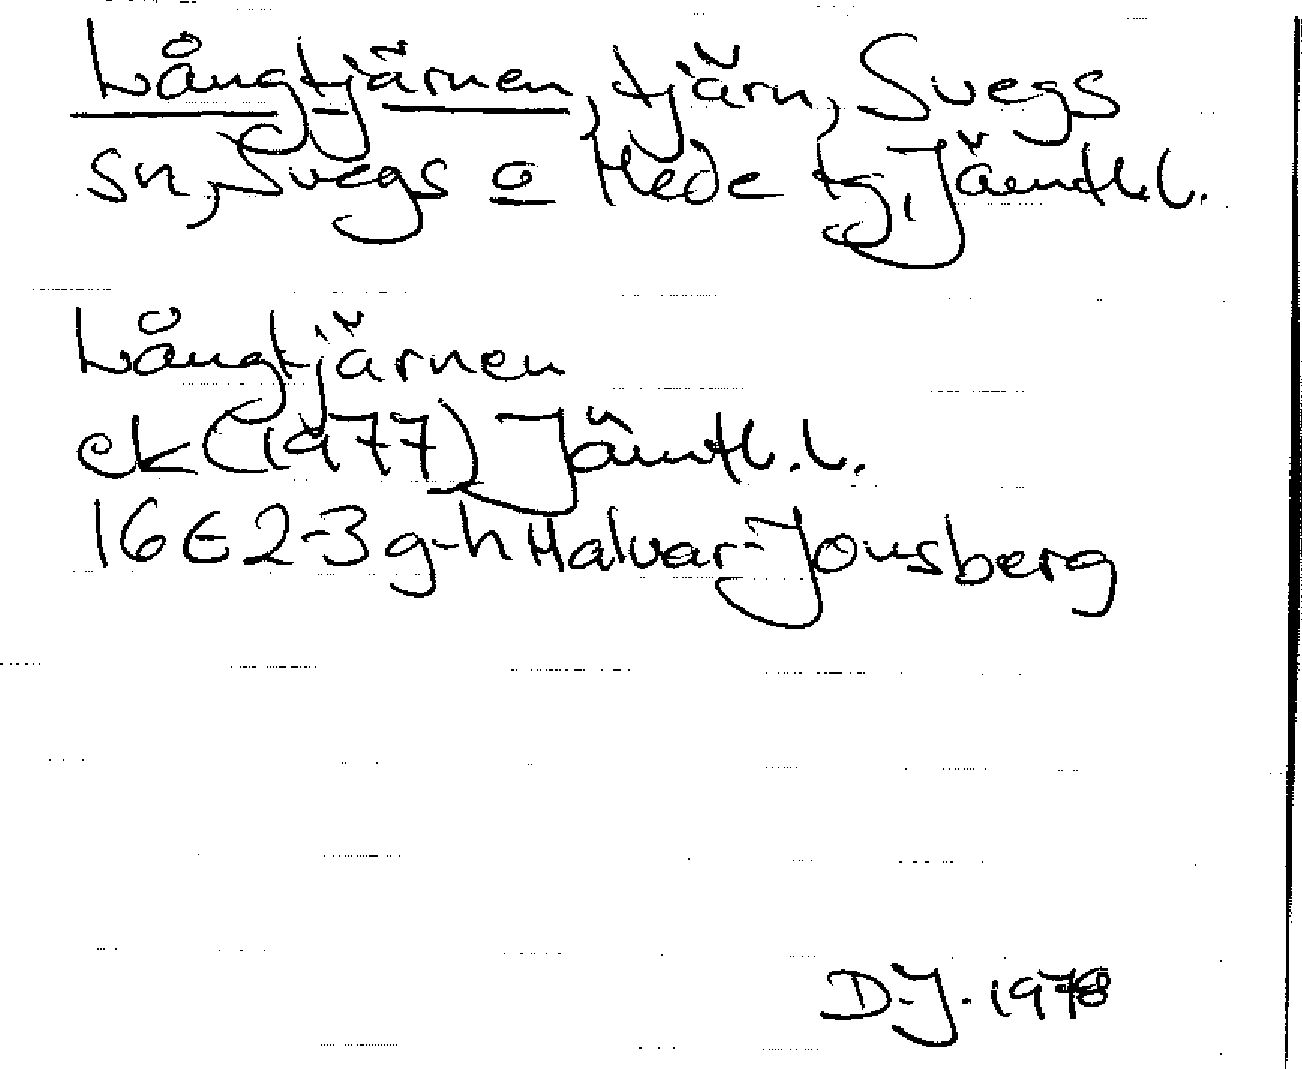 Långtjärnen, tjärn, Svegs
sn, Svegs o Hede tg, Jämtl.l.
Långtjärnen
ek (1977) Jämtl.l.
16E2-3g-h Halvar-Jonsberg
D-J. 1978